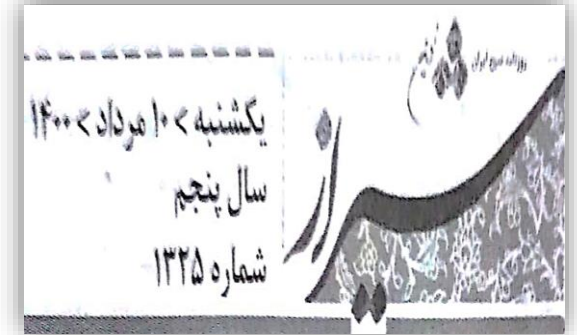 روزنامه صبح ایران
شیراز
نوین
یکشنبه > ۱۰ مرداد > ۱۴۰۰
سال پنجم
شماره ۱۳۲۵